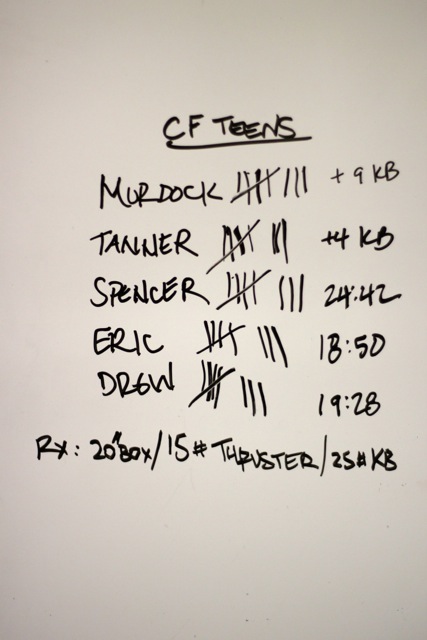 CF TEENS
MURDOCK 𝍸 ||| + 9 KB
TANNER 𝍸 || +4 KB
SPENCER 𝍸 ||| 24:42
ERIC 𝍸 ||| 18:50
DREW 𝍸 ||| 19:28
RX: 20" BOX/15# THRUSTER/25# KB